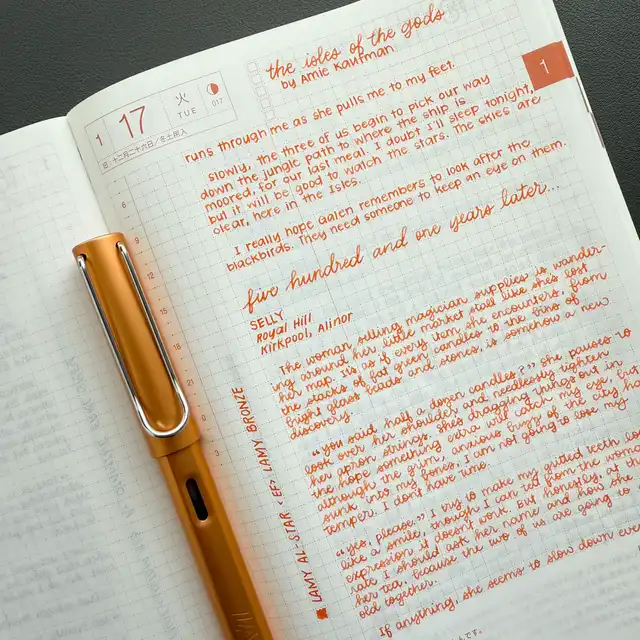 the isles of the gods
by Amie Kaufman
1
1 17 火 TUE 017
旧. 十二月二十六日／冬土用入
runs through me as she pulls me to my feet.
slowly, the three of us begin to pick our way
down the jungle path to where the ship is
moored, for our last meal. I doubt I'll sleep tonight,
but it will be good to watch the stars. The skies are
clear, here in the Isles.
I really hope Galen remembers to look after the
blackbirds. They need someone to keep an eye on them.
five hundred and one years later...
SELLY
Royal Hill
Kirkpool, Alinor
The woman selling magician supplies is wander-
ing around her little market stall like she's lost
her map. It's as if every item she encounters, from
the stacks of fat green candles to the bins of
bright glass beads and stones, is somehow a new
discovery.
"You said half a dozen candles?" she pauses to
look over her shoulder and needlessly tighten
her apron strings. she's dragging things out in
the hope something extra will catch my eye, but
although the grimy, anxious buzz of the city has
sunk into my bones, I am not going to lose my
temper. I don't have time.
"yes, please." I try to make my gritted teeth look
like a smile, though I can tell from the woman's
expression it doesn't work. But honestly, at this
rate I should ask her name and how she
her tea, because the two of us are going to
old together.
If anything, she seems to slow down even
LAMY AL-STAR <EF> LAMY BRONZE
6
9
12
15
18
21
0
3